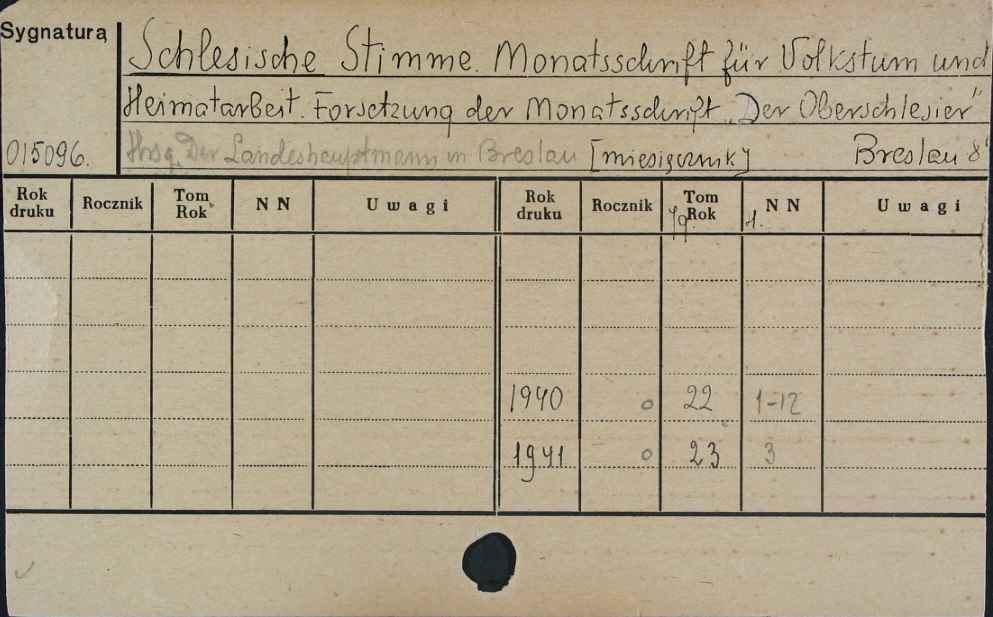 Sygnatura
Schlesische Stimme. Monatsschrift für Volkstum und
Heimatarbeit. Forsetzung der Monatsschrift „Der Oberschlesier"
015096. Hrsg. Der Landeshauptmann in Breslau [miesięcznik] Breslau 8°
Rok druku Rocznik Tom Rok NN Uwagi Rok druku Rocznik Tom Rok NN Uwagi
Jg. 1.
1940 0 22 1-12
1941 0 23 3